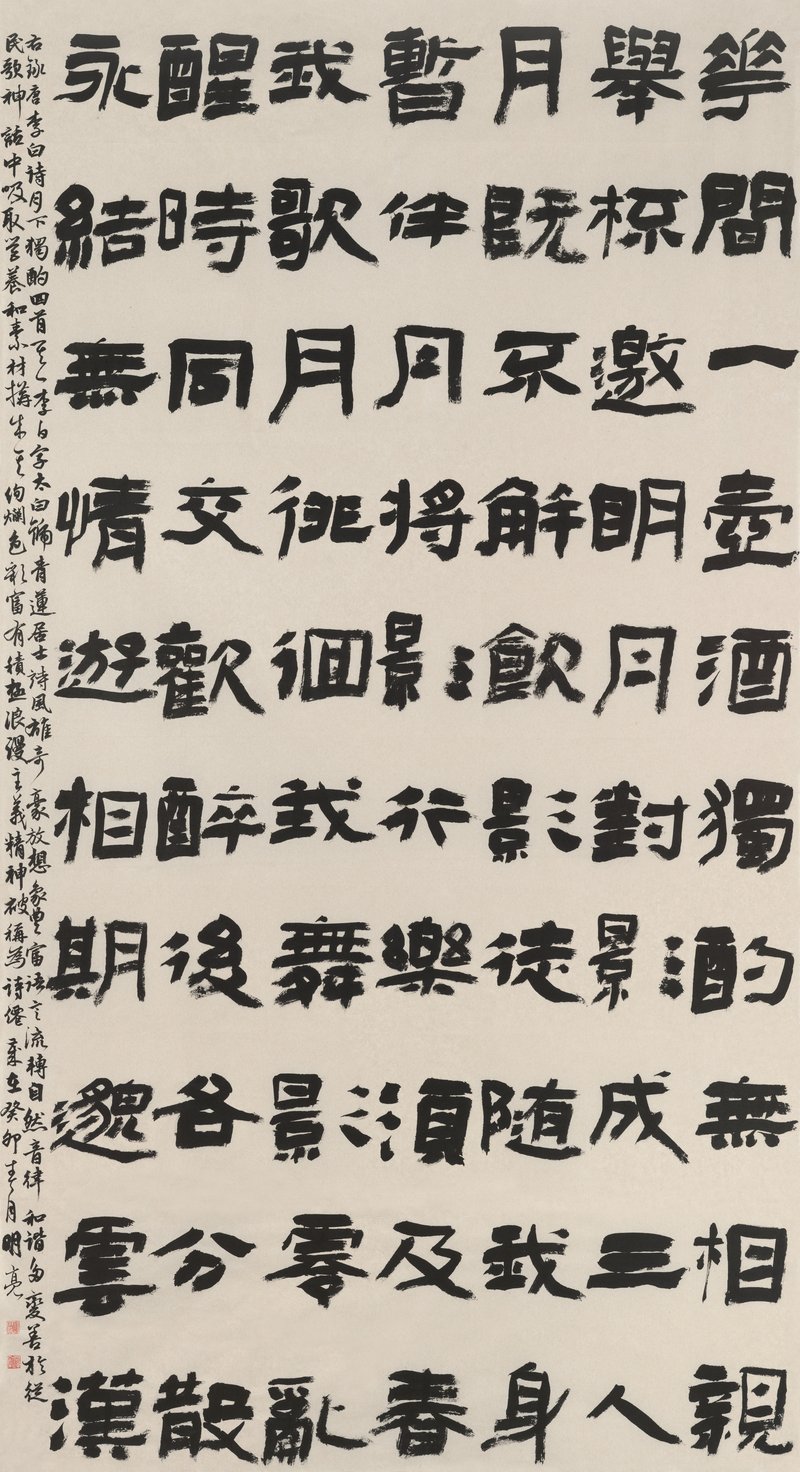 華間一壺酒獨酌無相親
舉杯邀明月對影成三人
月既不解飲影徒随我身
暫伴月將影行樂須及春
我歌月徘徊我舞影零亂
醒時同交歡醉後各分散
永結無情遊相期邈雲漢
右錄唐李白詩月下獨酌四首其一李白字太白號青蓮居士詩風雄奇豪放想象豐富語言流轉自然音律和諧多變善於從
民歌神話中吸取營養和素材構成其絢爛色彩富有積極浪漫主義精神被稱為詩僊歲在癸卯春月明亮